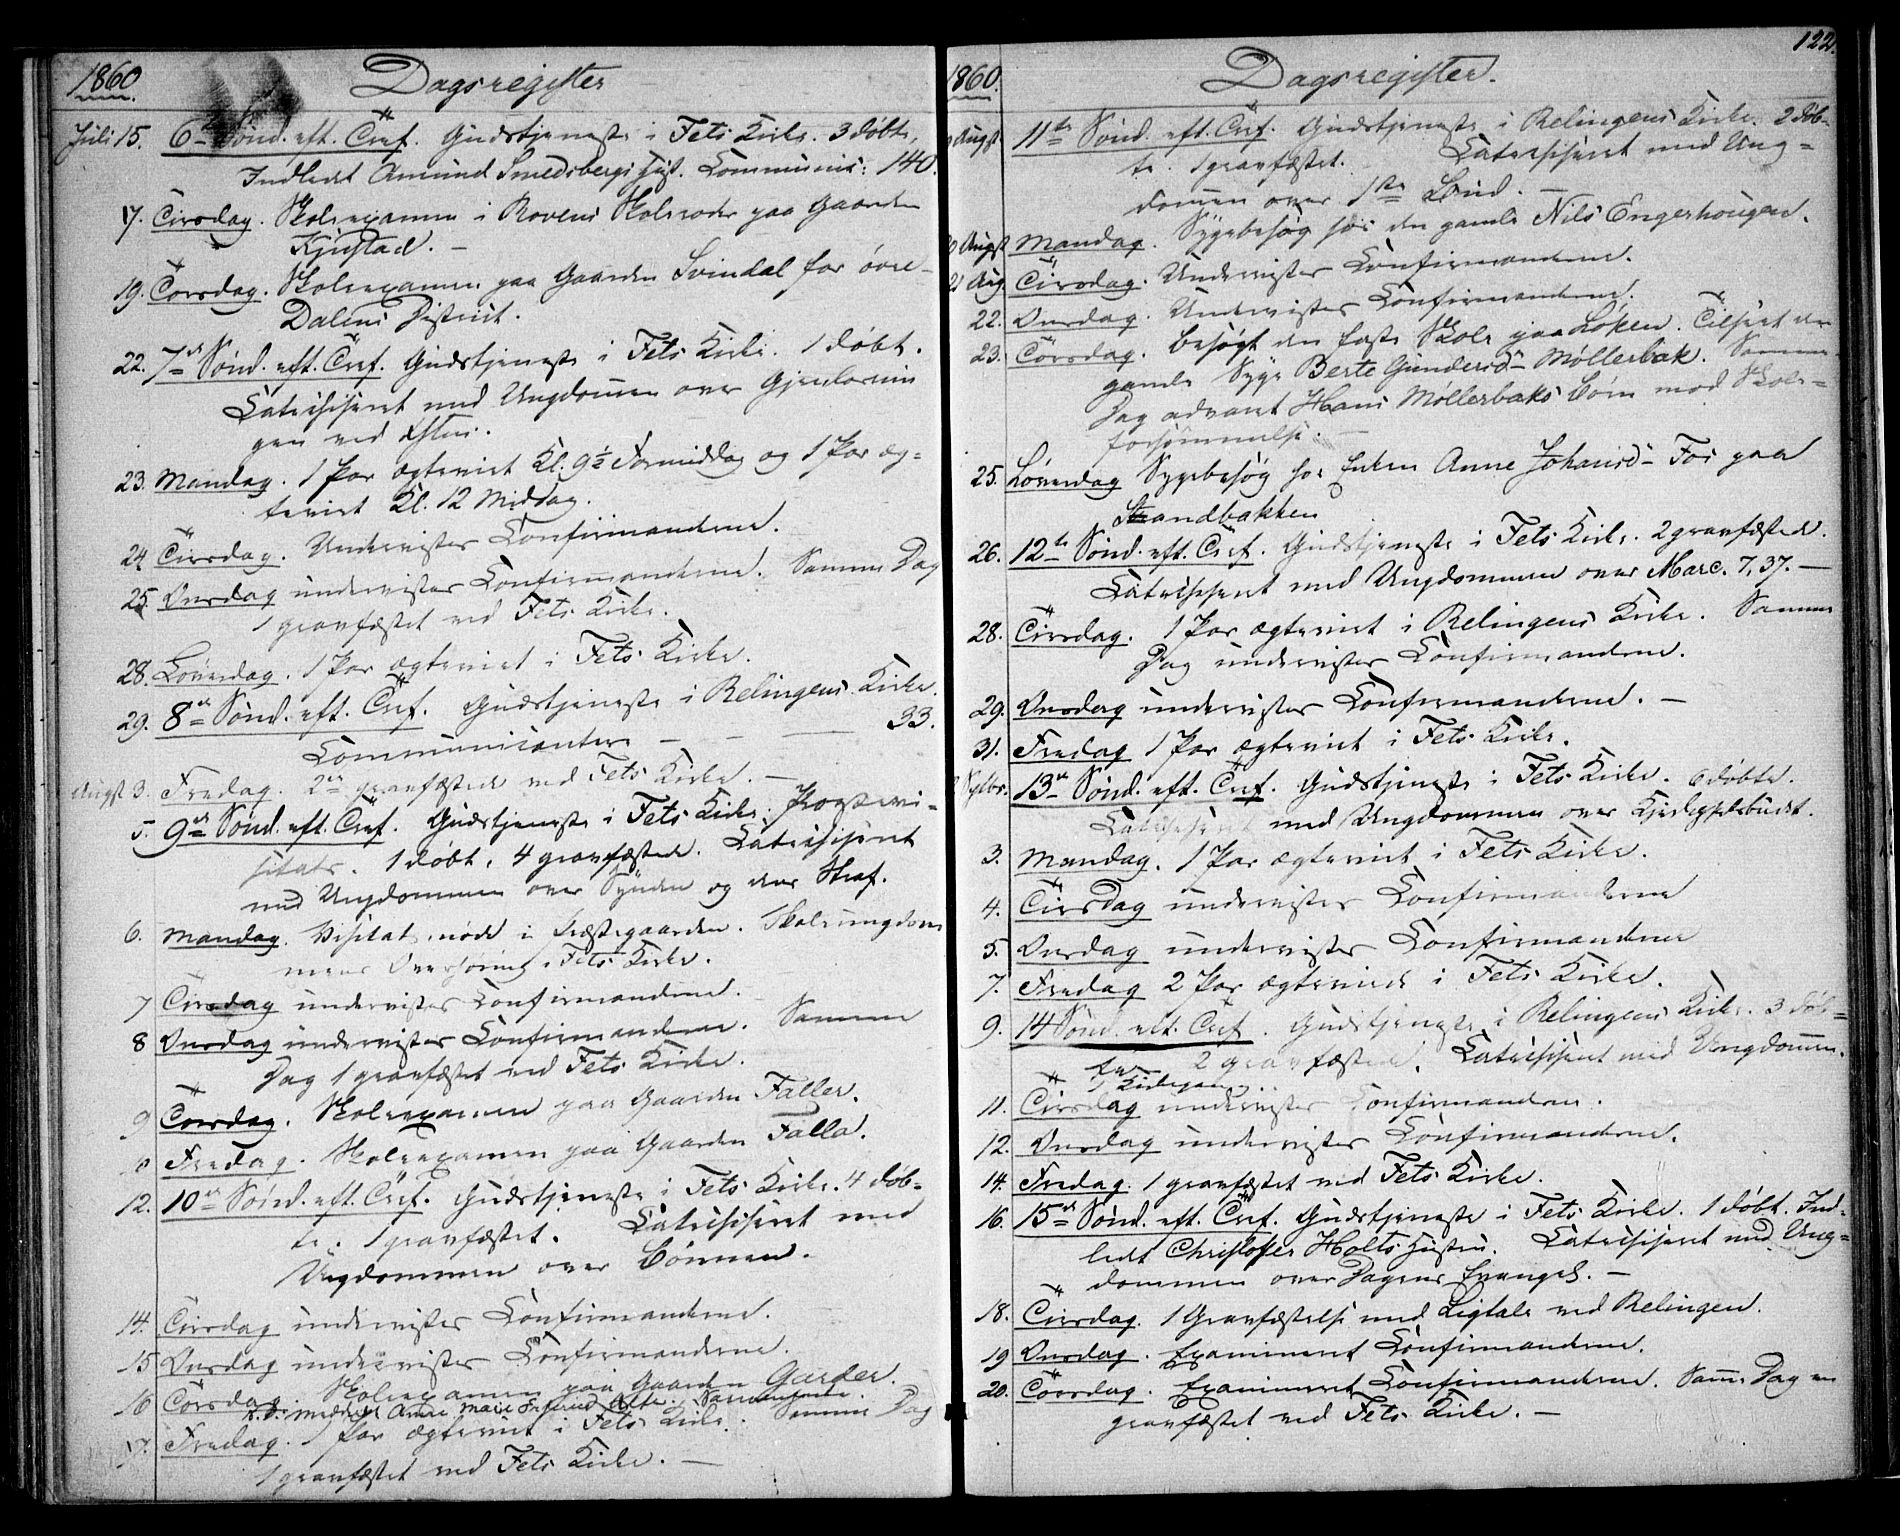 1860. Dagsregister
Juli 15. 6te Sønd. eft. Tref. Gudstjeneste i Fets Kirke. 3 døbte.
Indledt Amund Smedsbergs Hust. Communic: 140.
17. Tirsdag. Skoleexamen i Rovens Skolerode paa Gaarden
Kjustad. —
19. Torsdag. Skoleexamen paa Gaarden Svindal for övre
Dalens District.
22. 7de Sønd. eft. Tref. Gudstjeneste i Fets Kirke. 1 døbt.
Catechiseret med Ungdommen over Gjenløsnin
gen ved
23. Mandag. 1 Par ægteviet Kl. 9½ Formiddag og 1 Par æg-
teviet Kl. 12 Middag.
24 Tirsdag. Undervistes Confirmanderne.
25. Onsdag undervistes Confirmanderne. Samme Dag
1 gravfæstet ved Fets Kirke.
28. Løverdag. 1 Par ægteviet i Fets Kirke.
29. 8de Sønd. eft. Tref. Gudstjeneste i Relingens Kirke.
Communicantere — — — 33.
Augst 3. Fredag. 2de gravfæstede ved Fets Kirke. —
5. 9de Sønd. eft. Tref. Gudstjeneste i Fets Kirke. Provstevi-
sitats. 1 døbt, 4 gravfæstede. Catechiseret
med Ungdommen over Synden og dens Straf.
6. Mandag. Visitatsmøde i Præstegaarden. Skoleungdom
mens Overhøring i Fets Kirke.
7 Tirsdag undervistes Confirmanderne.
8 Onsdag undervistes Confirmanderne. Samme
Dag 1 gravfæstet ved Fets Kirke.
9 Torsdag. Skoleexamen paa Gaarden Faller.
Fredag. Skoleexamen paa Gaarden Falla.
12. 10de Sønd. eft. Tref. Gudstjeneste i Fets Kirke. 4 døb-
te. 1 gravfæstet. Catechiseret med
Ungdommen over Bønnen.
14. Tirsdag undervistes Confirmanderne.
15 Onsdag undervistes Confirmanderne.
16 Torsdag. Skoleexamen paa Gaarden Garder.
Anne Marie
17. Fredag. 1 Par ægteviet i Fets Kirke. Samme Dag
1 gravfæstet ved Fets Kirke. —
122.
1860. Dagsregister.
Augst 11te Sønd. eft. Tref. Gudstjeneste i Relingens Kirke. 2 døb-
te. 1 gravfæstet. Catechiseret med Ung-
dommen over 1ste Bud. —
Augst Mandag. Sygebesøg hos den gamle Nils Engerhougen.
21 Aug Tirsdag. Undervistes Confirmanderne.
22. Onsdag. Undervistes Confirmanderne.
23. Torsdag. Besøgt den faste Skole paa Løken. Tilseet den
gamle Syge Berte Gundersd- Møllerbak. Samme
Dag advaret Hans Møllerbaks Børn mod Skole-
forsømmelse. —
25. Løverdag Sygebesøg hos Enken Anne Johansd- Fos paa
Strandbakken
26. 12te Sønd. eft. Tref. Gudstjeneste i Fets Kirke. 2 gravfæstede.
Catechiseret med Ungdommen over Marc. 7, 37. —
28. Tirsdag. 1 Par ægteviet i Relingens Kirke. Samme
Dag undervistes Confirmanderne.
29. Onsdag undervistes Confirmanderne. —
31. Fredag 1 Par ægteviet i Fets Kirke.
Sptbr. 13de Sønd. eft. Tref. Gudstjeneste i Fets Kirke. 6 døbte.
Catechiseret med Ungdommen over Kjerlighedsbudet.
3. Mandag. 1 Par ægteviet i Fets Kirke.
4. Tirsdag undervistes Confirmanderne
5. Onsdag undervistes Confirmanderne
7. Fredag 2 Par ægteviede i Fets Kirke.
9. 14 Sønd. eft. Tref. Gudstjeneste i Relingens Kirke. 3 døb-
te 2 gravfæstede. Catechiseret med Ungdommen.
1 Kirkegang.
11. Tirsdag undervistes Confirmanderne.
12. Onsdag undervistes Confirmanderne.
14. Fredag. 1 gravfæstet ved Fets Kirke.
16. 15de Sønd. eft. Tref. Gudstjeneste i Fets Kirke. 1 døbt. Ind-
ledt Christoffer Holts Hustru. Catechiseret med Ung-
dommen over Dagens Evangel. —
18. Tirsdag. 1 Gravfæstelse med Ligtale ved Relingen.
19 Onsdag. Examineret Confirmanderne.
20. Torsdag. Examineret Confirmanderne. Samme Dag en
gravfæstet ved Fets Kirke. —